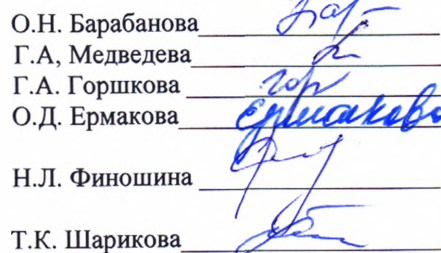 О.Н. Барабанова
Г.А, Медведева
Г.А. Горшкова гор
О.Д. Ермакова Ермакова
Н.Л. Финошина
Т.К. Шарикова